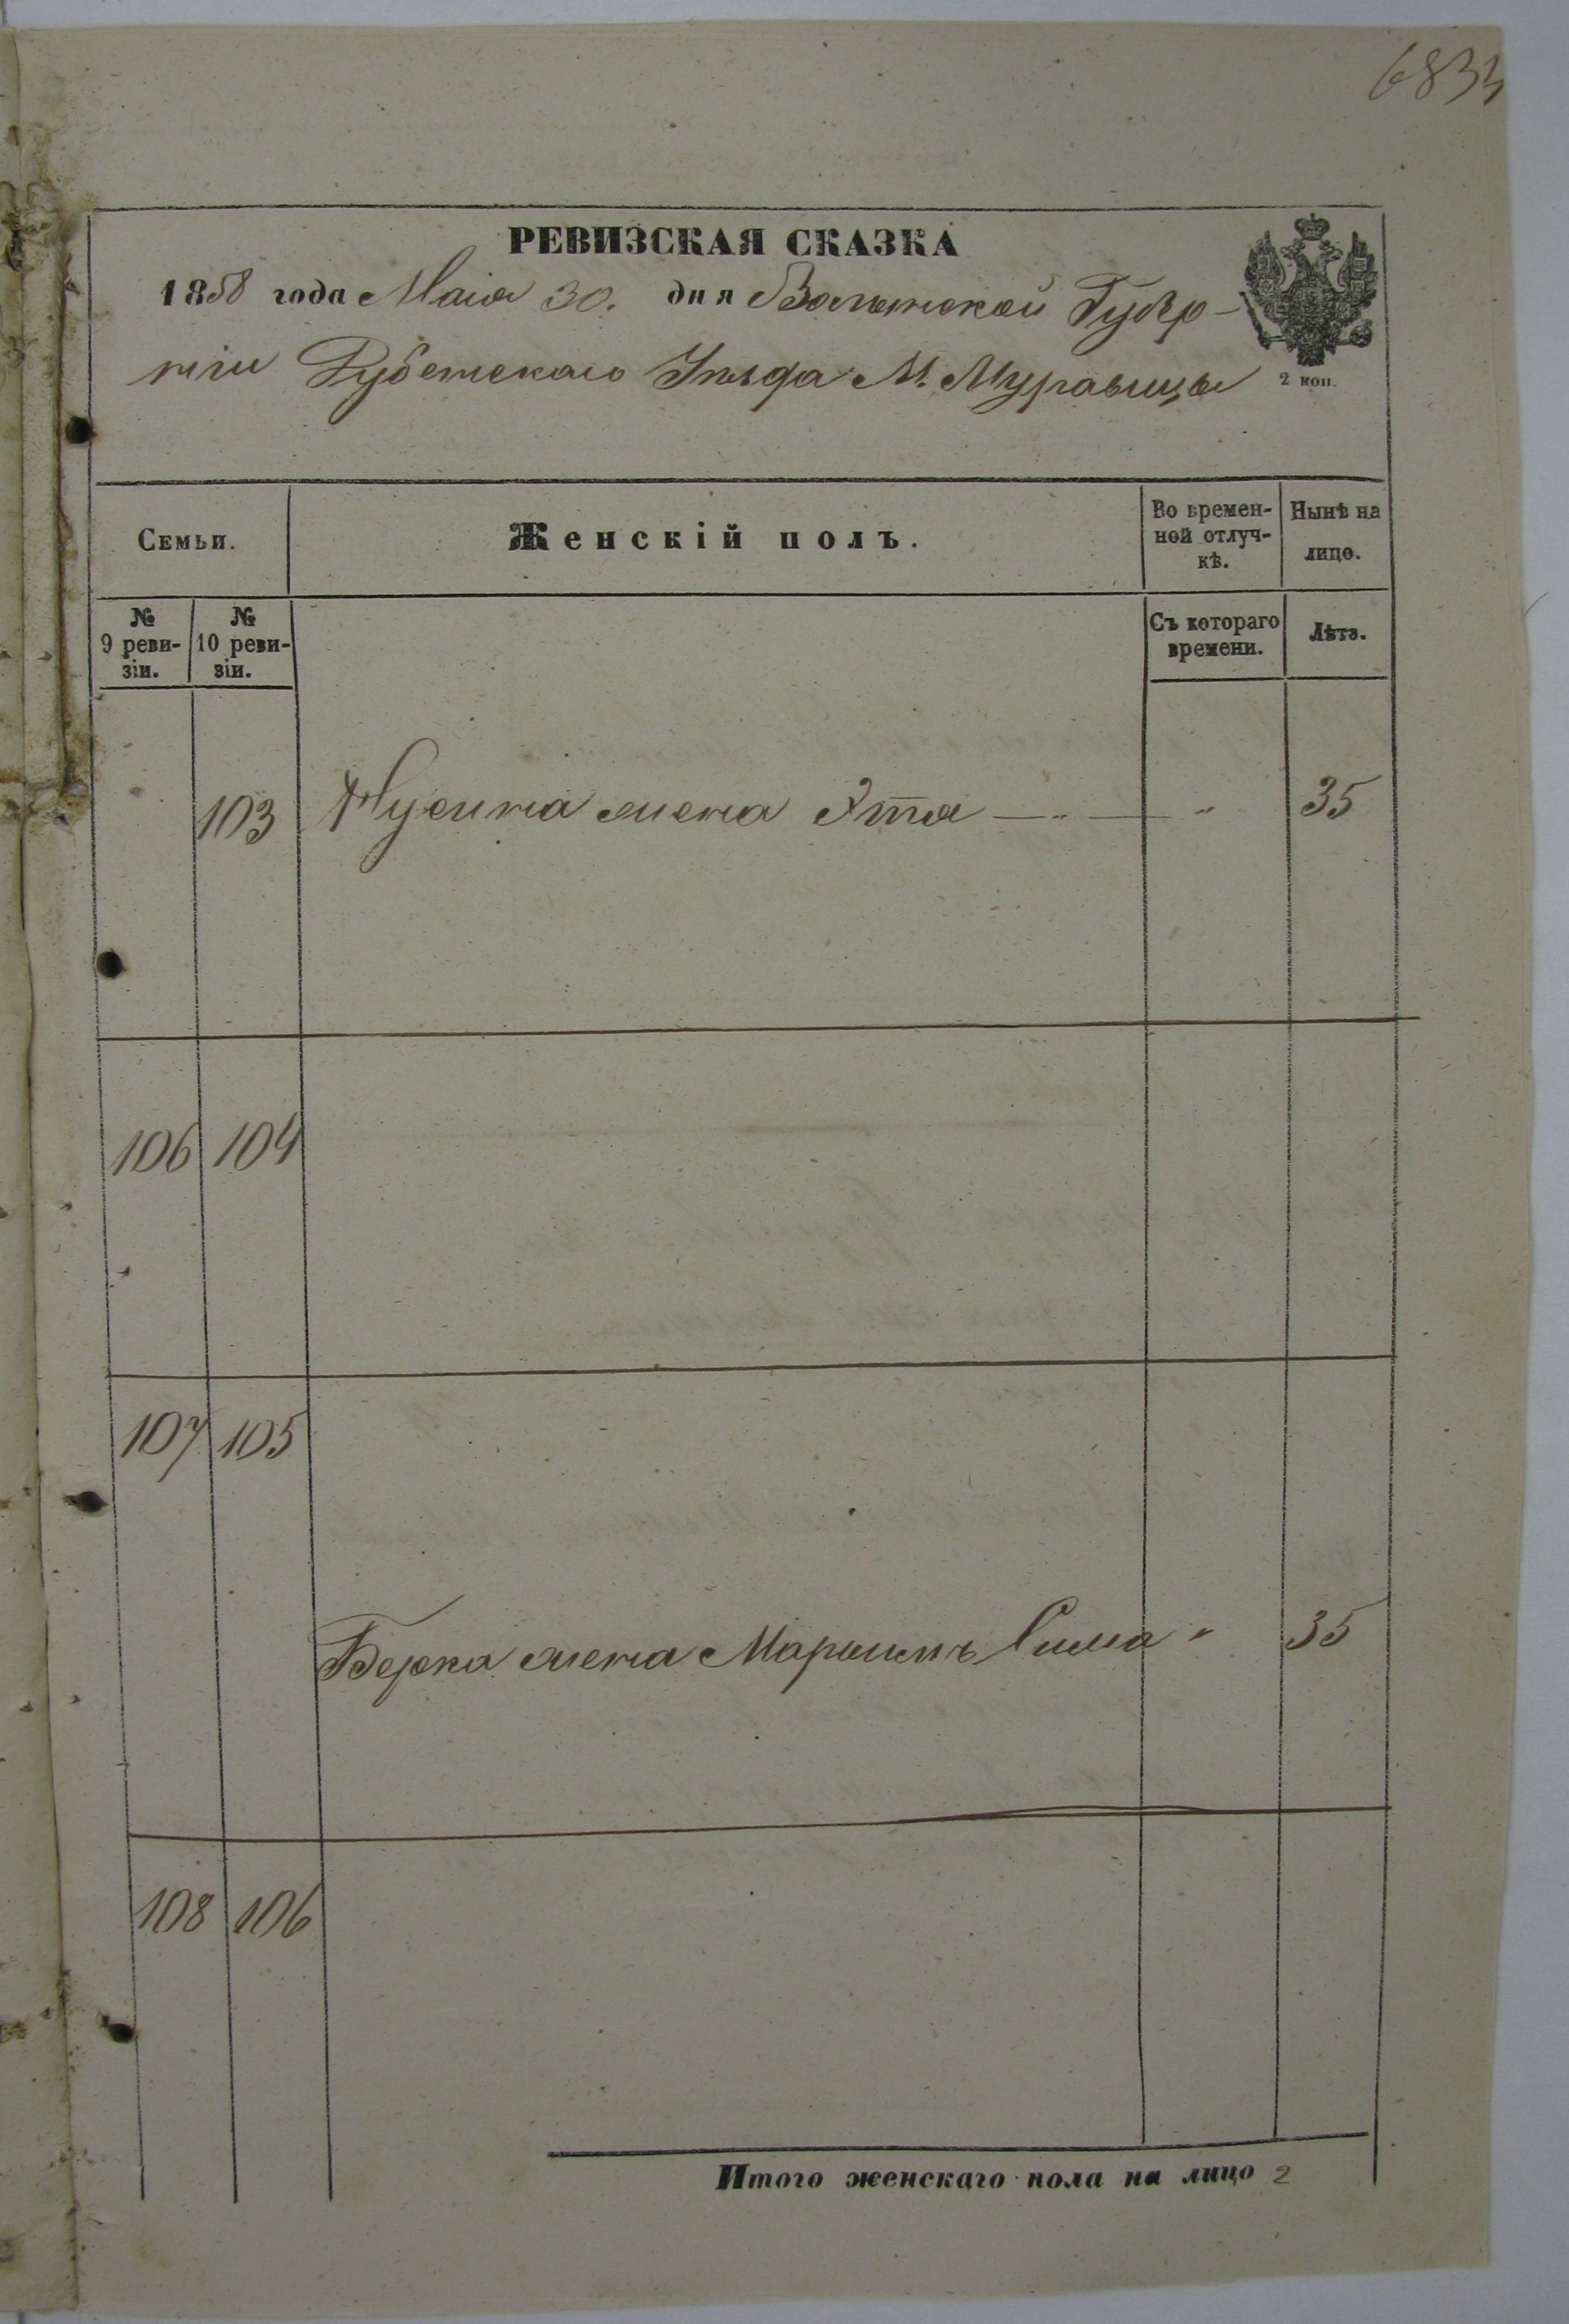 6833
РЕВИЗСКАЯ СКАЗКА
1858 года Маія 30. дня Волынской Губер-
ніи Дубенскаго Уѣзда М. Муравицы
2 коп.
Семьи.
Женскій полъ.
Во времен-
ной отлуч-
кѣ.
Нынѣ на
лицо.
№
9 реви-
зіи.
№
10 реви-
зіи.
Съ котораго
времени.
Лѣта.
103 Нусина жена Этта — „ — „ 35
106 104
107 105
Берка жена Марьимъ Сима „ 35
108 106
Итого женскаго пола на лицо 2